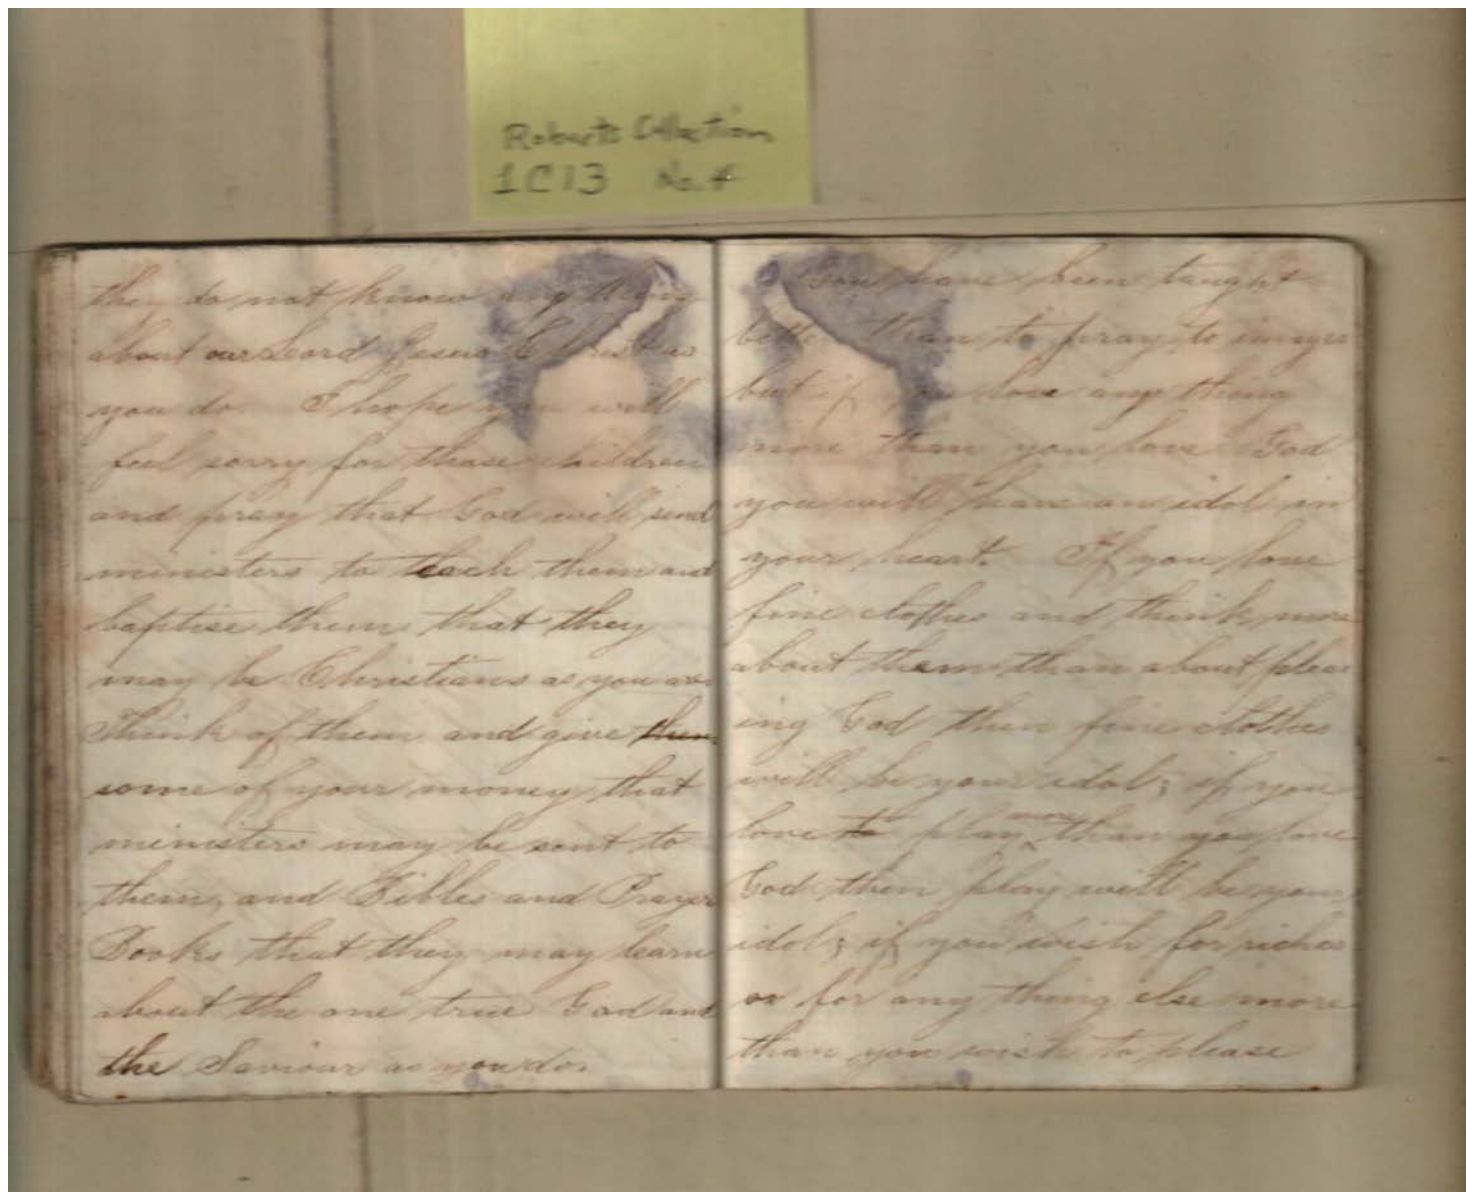 Roberts Collection
1C13 No. 4
they do not know any thing
about our Lord Jesus Christ as
you do. I hope you will
feel sorry for those children
and pray that God will send
ministers to teach them and
baptise them that they
may be Christians as you are
Think of them and give them
some of your money that
ministers may be sent to
them, and Bibles and Prayer
Books that they may learn
about the one true God and
the Saviour as you do.
You have been taught
better than to pray to images
but if you love any thing
more than you love God
you will have an idol in
your heart. If you love
fine clothes and think more
about them than about pleas
ing God then fine clothes
will be your idol; if you
love to play more than you love
God then play will be your
idol; if you wish for riches
or for any thing else more
than you wish to please